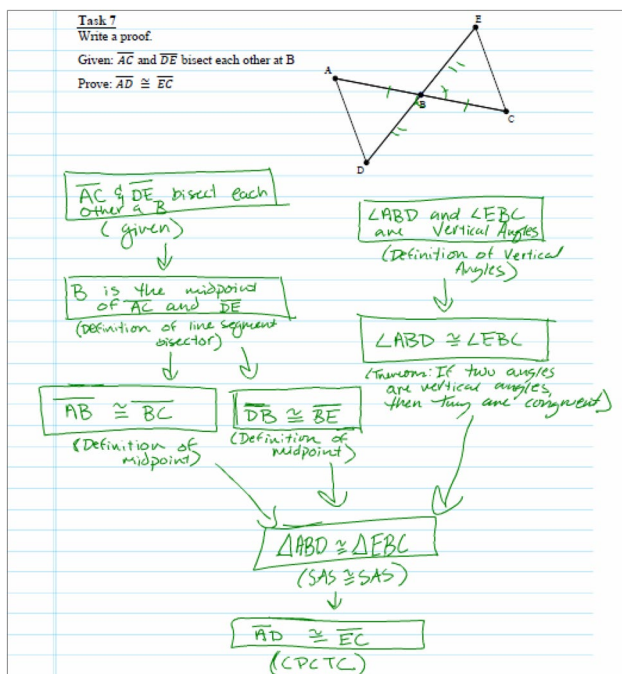 Task 7
Write a proof.
Given: A̅C̅ and D̅E̅ bisect each other at B
Prove: A̅D̅ ≅ E̅C̅
E
A
B
C
D
A̅C̅ & D̅E̅ bisect each
other @ B
(given)
B is the midpoint
of A̅C̅ and D̅E̅
(Definition of line segment
bisector)
A̅B̅ ≅ B̅C̅
(Definition of
midpoint)
D̅B̅ ≅ B̅E̅
(Definition of
midpoint)
∠ABD and ∠EBC
are Vertical Angles
(Definition of Vertical
Angles)
∠ABD ≅ ∠EBC
(Theorem: If two angles
are vertical angles,
then they are congruent)
△ABD ≅ △EBC
(SAS ≅ SAS)
A̅D̅ ≅ E̅C̅
(CPCTC)